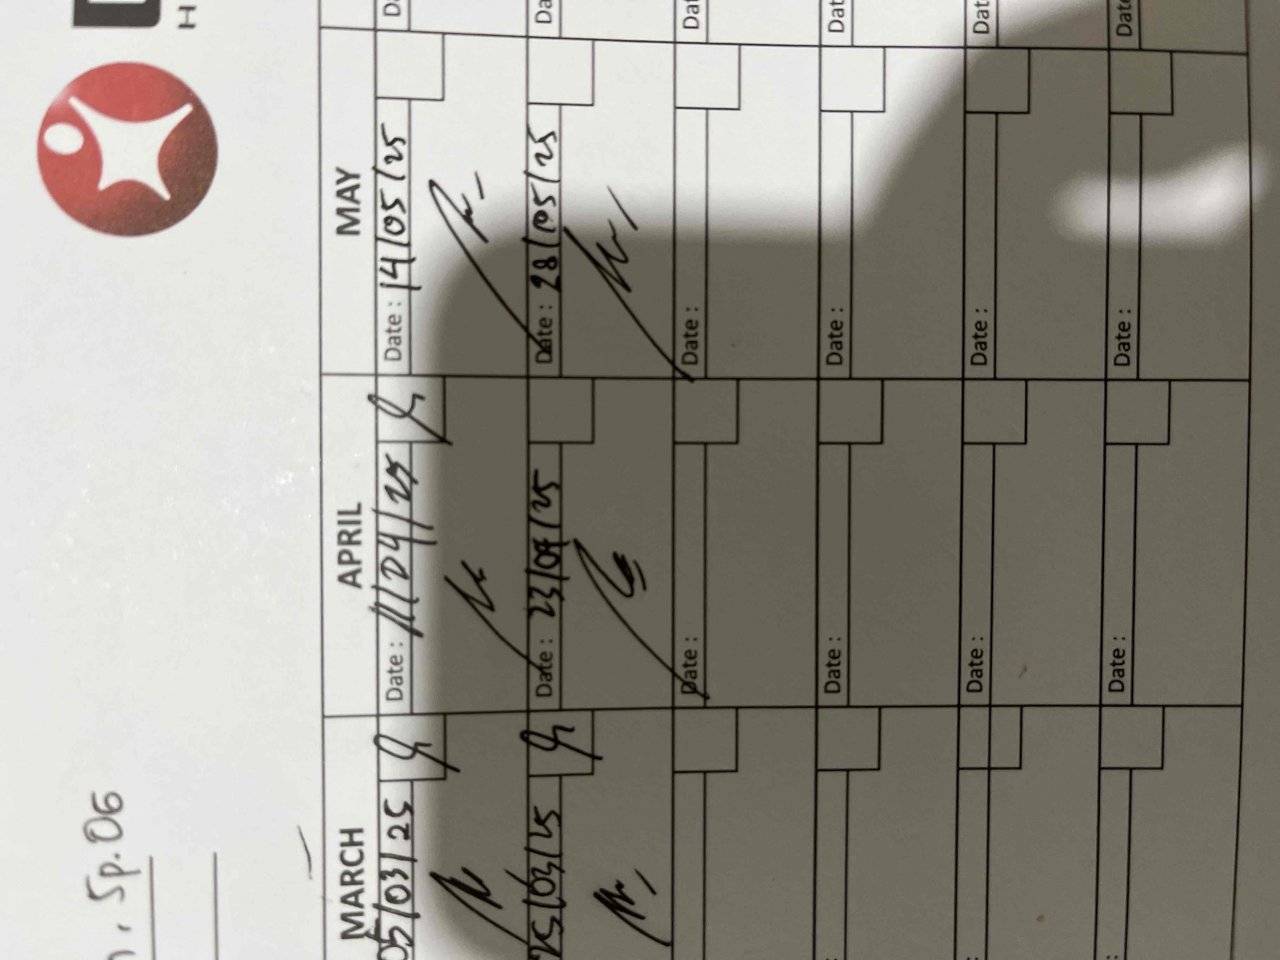 Sp.OG
MARCH APRIL MAY
05/03/25 Date : 11/04/25 Date : 14/05/25
25/03/25 Date : 23/04/25 Date : 28/05/25
Date : Date :
Date : Date :
Date : Date :
Date : Date :